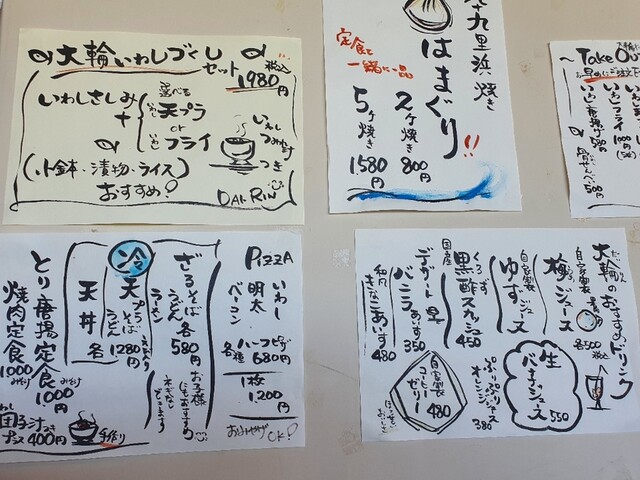 大輪いわしづくし
セット
税込
1980円
いわしさしみ
+
選べる
天プラ
or
フライ
いわし
つみれ汁
つき
(小鉢・漬物・ライス)
おすすめ?
DAIRIN
九十九里浜焼き
はまぐり!!
定食と
一緒に一品
2ヶ焼き
800円
5ヶ焼き
1580円
Take Out
いわし唐揚 580円
PIZZA
いわし
明太
ベーコン
各種
ハーフピザ
680円
1枚
1,200円
おみやげ
OK!
ざるそば
うどん
ラーメン
各580円
お子様
にもおすすめ
ネギなし
できます
冷
天プラ
そば
うどん
1280円
天丼
各
とり唐揚定食
1000円
みそ汁
焼肉定食
1000円
みそ汁
いわし団子汁つき
プラス400円
手作り
大輪のおすすめドリンク
自家製
梅ジュース
各500
税込
自家製
ゆずジュース
国産
くろず
黒酢スカッシュ
450
デザート
バニラあいす
350
和風
きなこあいす
480
生
パイナップルジュース
550
ぷりぷりジュース
オレンジ
380
自家製
コーヒー
ゼリー
480